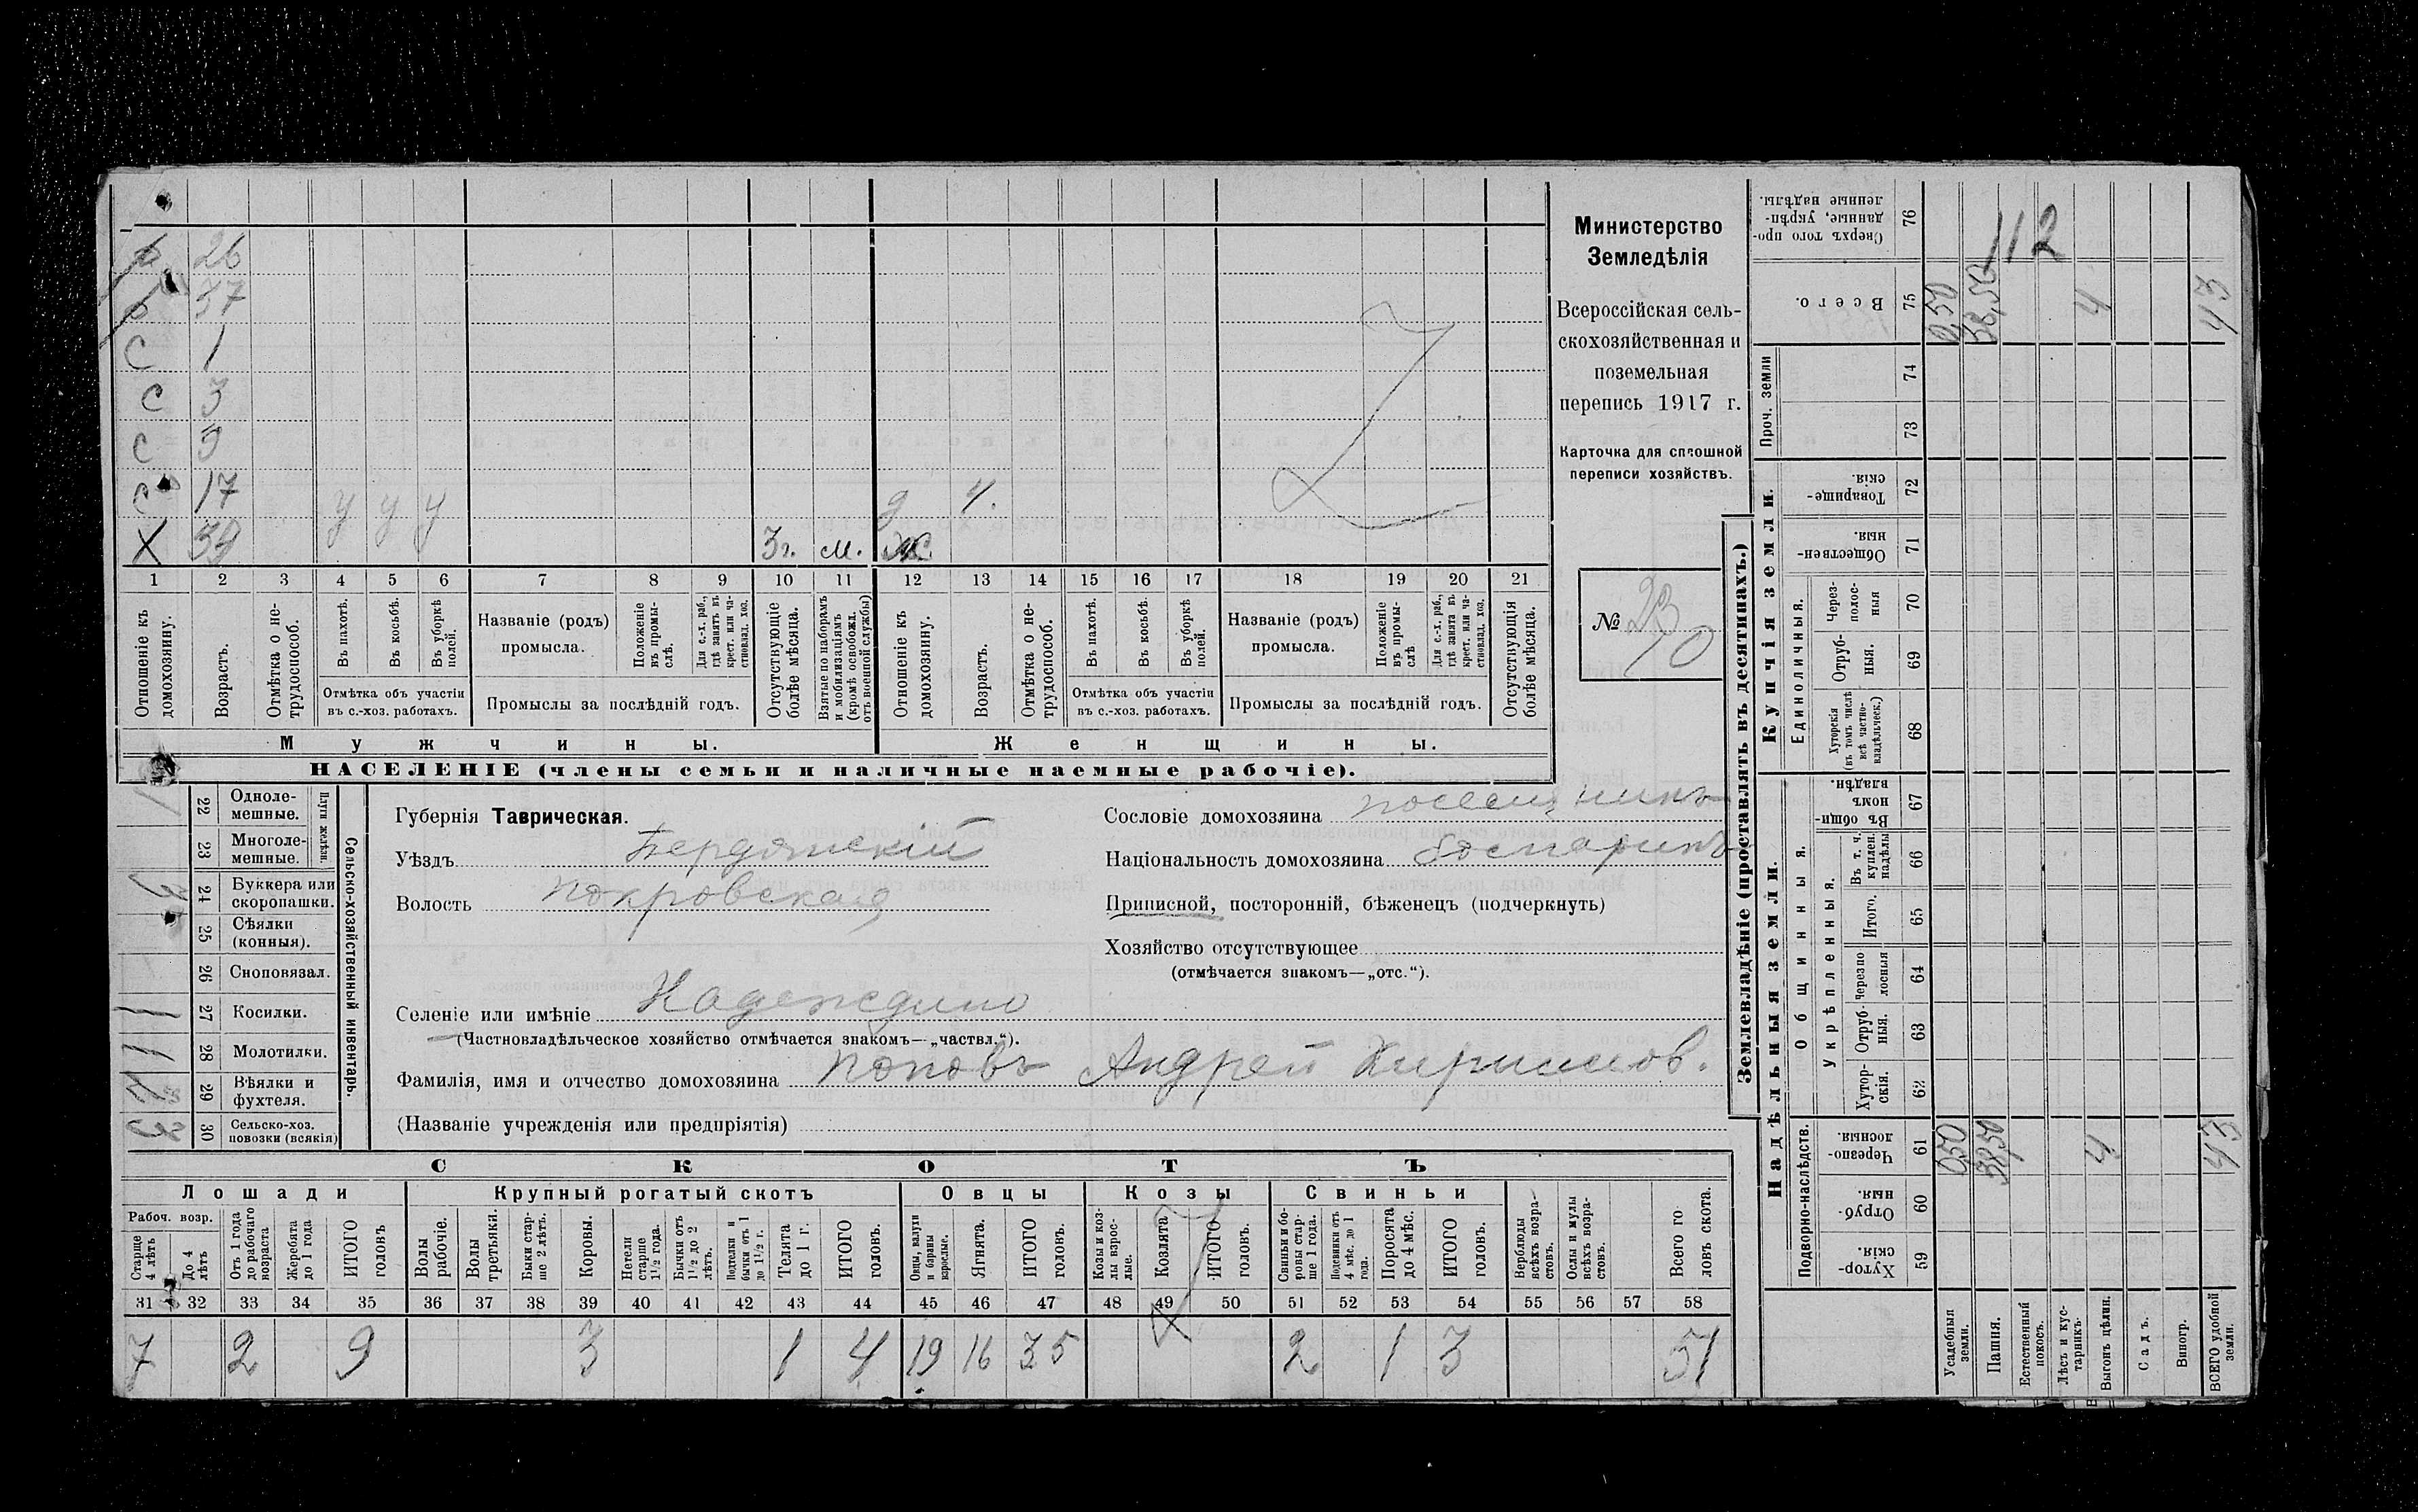 б 26
б 37
С 1
С 3
С 9
С 17
Х 39 у у у 3г. м. ж
д 4.
1 2 3 4 5 6 7 8 9 10 11 12 13 14 15 16 17 18 19 20 21
Отношеніе къ домохозяину.
Возрастъ.
Отмѣтка о нетрудоспособ.
Въ пахотѣ.
Въ косьбѣ.
Въ уборкѣ полей.
Отмѣтка объ участіи въ с.-хоз. работахъ.
Названіе (родъ) промысла.
Положеніе въ промыслѣ.
Для с.-х. раб., гдѣ занятъ въ крест. или частновлад. хоз.
Промыслы за послѣдній годъ.
Отсутствующіе болѣе мѣсяца.
Взятые по наборамъ и мобилизаціямъ (кромѣ освобожд. отъ военной службы)
Отношеніе къ домохозяину.
Возрастъ.
Отмѣтка о нетрудоспособ.
Въ пахотѣ.
Въ косьбѣ.
Въ уборкѣ полей.
Отмѣтка объ участіи въ с.-хоз. работахъ.
Названіе (родъ) промысла.
Положеніе въ промыслѣ
Для с.-х. раб., гдѣ занята въ крест. или частновлад. хоз.
Промыслы за послѣдній годъ.
Отсутствующія болѣе мѣсяца.
Мужчины.
Женщины.
НАСЕЛЕНІЕ (члены семьи и наличные наемные рабочіе).
Министерство
Земледѣлія
Всероссійская сель-
скохозяйственная и
поземельная
перепись 1917 г.
Карточка для сплошной
переписи хозяйствъ.
№ 23
70
Сельско-хозяйственный инвентарь.
Плуги желѣзн.
22 Однолемешные. 1
23 Многолемешные.
24 Буккера или скоропашки.
25 Сѣялки (конныя).
26 Сноповязал.
27 Косилки. 1
28 Молотилки. 1
29 Вѣялки и фухтеля.
30 Сельско-хоз. повозки (всякія) 3
Губернія Таврическая.
Уѣздъ Бердянскій
Волость Покровская
Сословіе домохозяина поселянинъ
Національность домохозяина болгаринъ
Приписной, посторонній, бѣженецъ (подчеркнуть)
Хозяйство отсутствующее
(отмѣчается знакомъ—„отс.“).
Селеніе или имѣніе Надеждино
(Частновладѣльческое хозяйство отмѣчается знакомъ—„частвл.“).
Фамилія, имя и отчество домохозяина Поповъ Андрей
(Названіе учрежденія или предпріятія)
СКОТЪ
Лошади
Крупный рогатый скотъ
Овцы
Козы
Свиньи
Рабоч. возр.
Старше 4 лѣтъ
До 4 лѣтъ
Отъ 1 года до рабочаго возраста
Жеребята до 1 года
ИТОГО головъ
Волы рабочіе.
Волы третьяки.
Быки старше 2 лѣтъ.
Коровы.
Нетели старше 1½ года.
Бычки отъ 1½ до 2 лѣтъ.
Подтелки и бычки отъ 1 до 1½ г.
Телята до 1 г.
ИТОГО головъ.
Овцы, валухи и бараны взрослые.
Ягнята.
ИТОГО головъ.
Козы и козлы взрослые.
Козлята
ИТОГО головъ.
Свиньи и боровы старше 1 года.
Подсвинки отъ 4 мѣс. до 1 года.
Поросята до 4 мѣс.
ИТОГО головъ.
Верблюды всѣхъ возрастовъ.
Ослы и мулы всѣхъ возрастовъ.
Всего головъ скота.
31 32 33 34 35 36 37 38 39 40 41 42 43 44 45 46 47 48 49 50 51 52 53 54 55 56 57 58
7 2 9 3 1 4 19 16 35 2 1 3 51
Землевладѣніе (проставлять въ десятинахъ.)
Сверхъ того проданные, укрѣпленные надѣлы. 76
112
Всего. 75 0,50 38,50 4 43
Проч. земли 74 73
Купчія земли.
Товарищескія. 72
Общественныя. 71
Единоличныя.
Черезполосныя 70
Отрубныя. 69
Хуторскія (въ томъ числѣ всѣ частновладѣльческ.) 68
Надѣльныя земли.
Общинныя.
Въ общинномъ владѣн. 67
Укрѣпленныя.
Въ т. ч. куплен. надѣлы 66
Итого. 65
Черезполосныя 64
Отрубныя. 63
Хуторскія. 62
Подворно-наслѣдств.
Черезполосныя. 61 0,50 38,50 4 43
Отрубныя. 60
Хуторскія. 59
Усадебныя земли.
Пашня.
Естественный покосъ.
Лѣсъ и кустарникъ.
Выгонъ цѣлин.
Садъ.
Виногр.
ВСЕГО удобной земли.